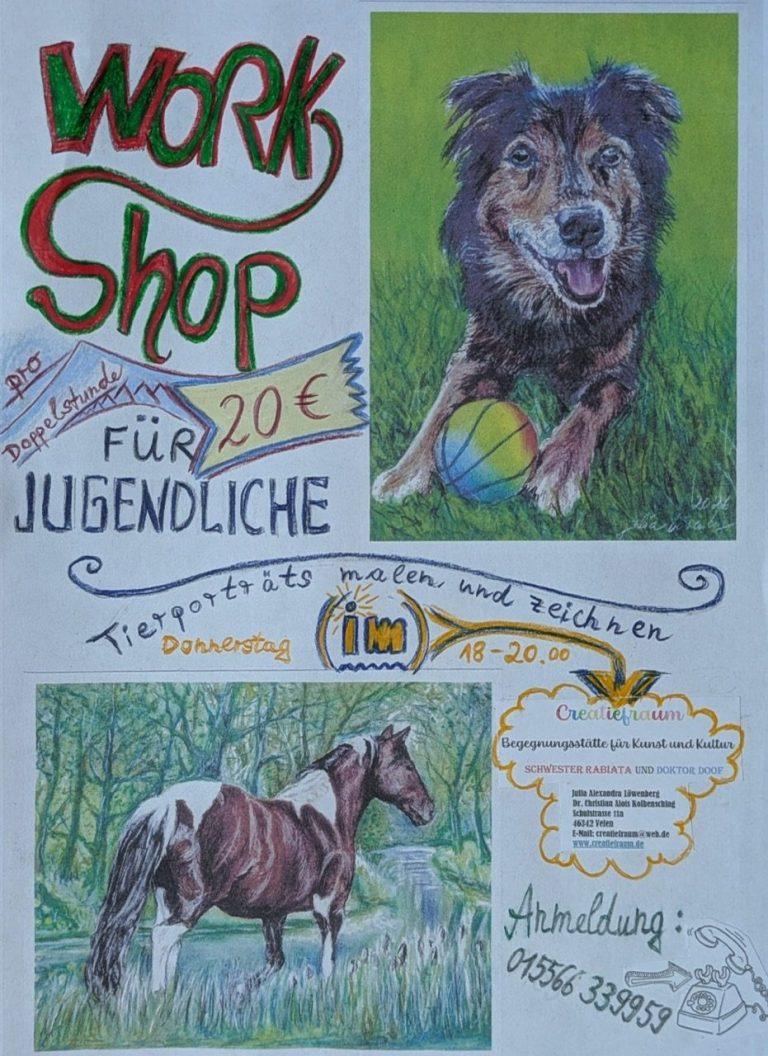 WORK
Shop
pro
Doppelstunde
20 €
FÜR
JUGENDLICHE
2021
Tierporträts malen und zeichnen
Donnerstag
(im)
18-20.00
Creatiefraum
Begegnungsstätte für Kunst und Kultur
SCHWESTER RABIATA UND DOKTOR DOOF
Julia Alexandra Löwenberg
Dr. Christian Alois Kolbensching
Schulstrasse 11a
46342 Velen
E-Mail: creatiefraum@web.de
www.creatiefraum.de
Anmeldung:
015566 339959